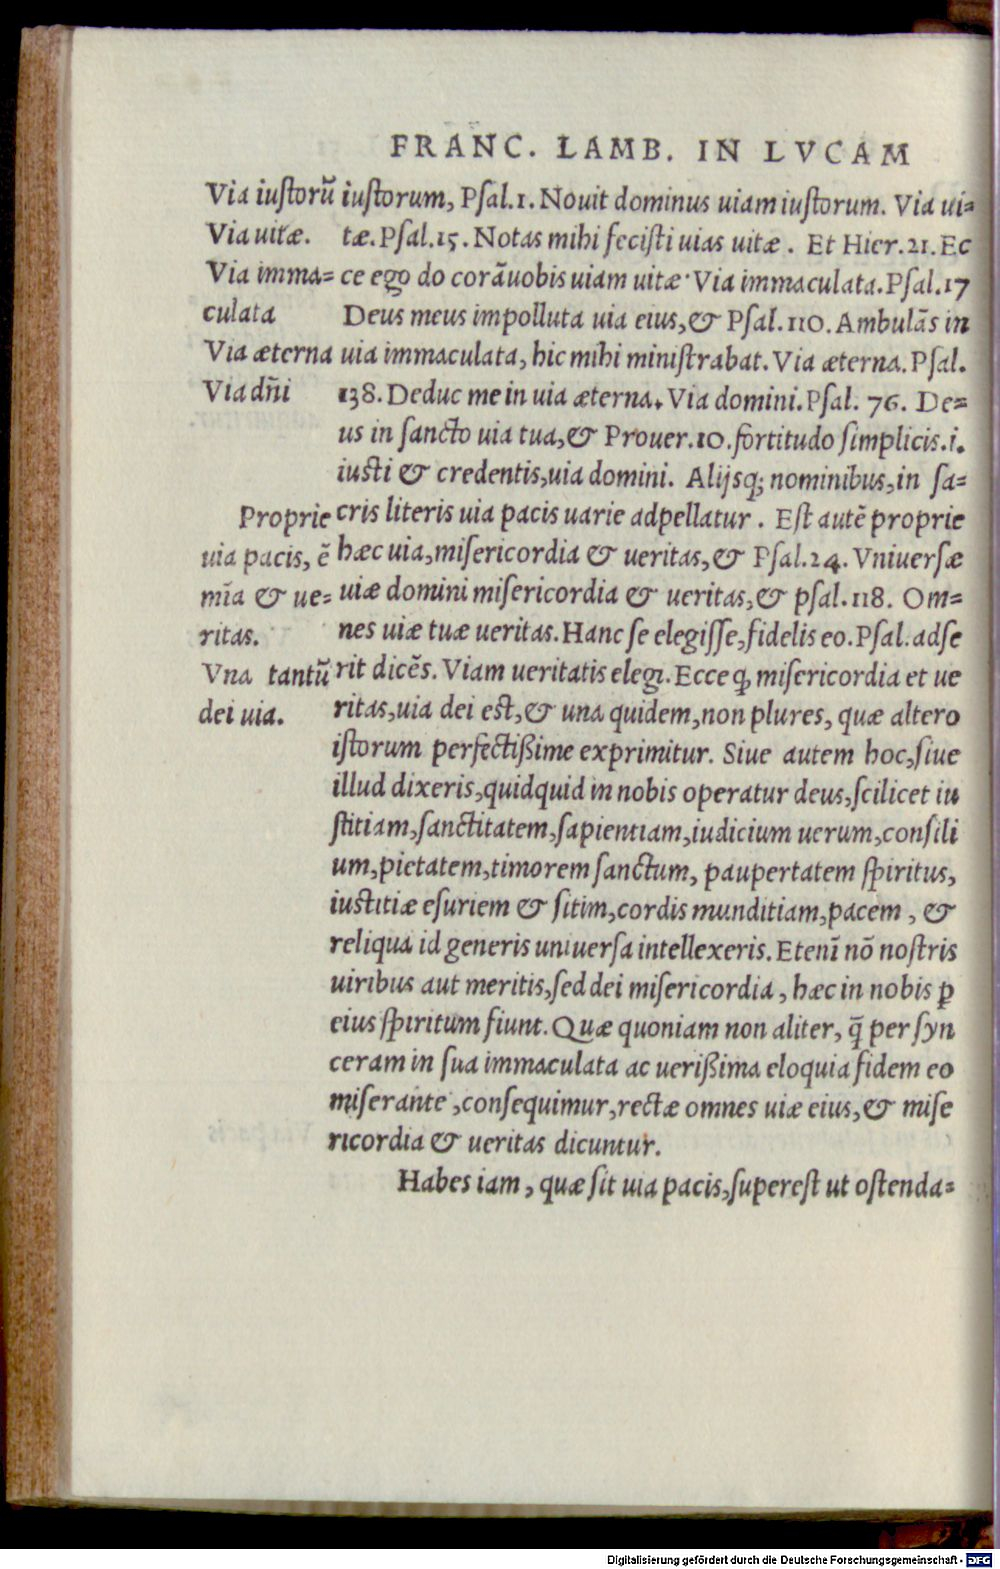 FRANC. LAMB. IN LVCAM
Via iustorũ
Via uitæ.
Via imma=
culata
Via æterna
Via dñi
Proprie
uia pacis, ẽ
mĩa & ue=
ritas.
Vna tantũ
dei uia.
iustorum, Psal.1. Nouit dominus uiam iustorum. Via ui=
tæ. Psal.15. Notas mihi fecisti uias uitæ. Et Hier.21. Ec
ce ego do corã uobis uiam uitæ. Via immaculata. Psal.17
Deus meus impolluta uia eius, & Psal.110. Ambulãs in
uia immaculata, hic mihi ministrabat. Via æterna. Psal.
138. Deduc me in uia æterna. Via domini. Psal. 76. De=
us in sancto uia tua, & Prouer.10. fortitudo simplicis.i.
iusti & credentis, uia domini. Alijsq; nominibus, in sa=
cris literis uia pacis uarie adpellatur. Est autẽ proprie
hæc uia, misericordia & ueritas, & Psal.24. Vniuersæ
uiæ domini misericordia & ueritas, & psal.118. Om=
nes uiæ tuæ ueritas. Hanc se elegisse, fidelis eo. Psal. adse
rit dicẽs. Viam ueritatis elegi. Ecce q; misericordia et ue
ritas, uia dei est, & una quidem, non plures, quæ altero
istorum perfectißime exprimitur. Siue autem hoc, siue
illud dixeris, quidquid in nobis operatur deus, scilicet iu
stitiam, sanctitatem, sapientiam, iudicium uerum, consili
um, pietatem, timorem sanctum, paupertatem spiritus,
iustitiæ esuriem & sitim, cordis munditiam, pacem, &
reliqua id generis uniuersa intellexeris. Etenĩ nõ nostris
uiribus aut meritis, sed dei misericordia, hæc in nobis ꝑ
eius spiritum fiunt. Quæ quoniam non aliter, q̃ per syn
ceram in sua immaculata ac uerißima eloquia fidem eo
miserante, consequimur, rectæ omnes uiæ eius, & mise
ricordia & ueritas dicuntur.
Habes iam, quæ sit uia pacis, superest ut ostenda=
Digitalisierung gefördert durch die Deutsche Forschungsgemeinschaft - DFG